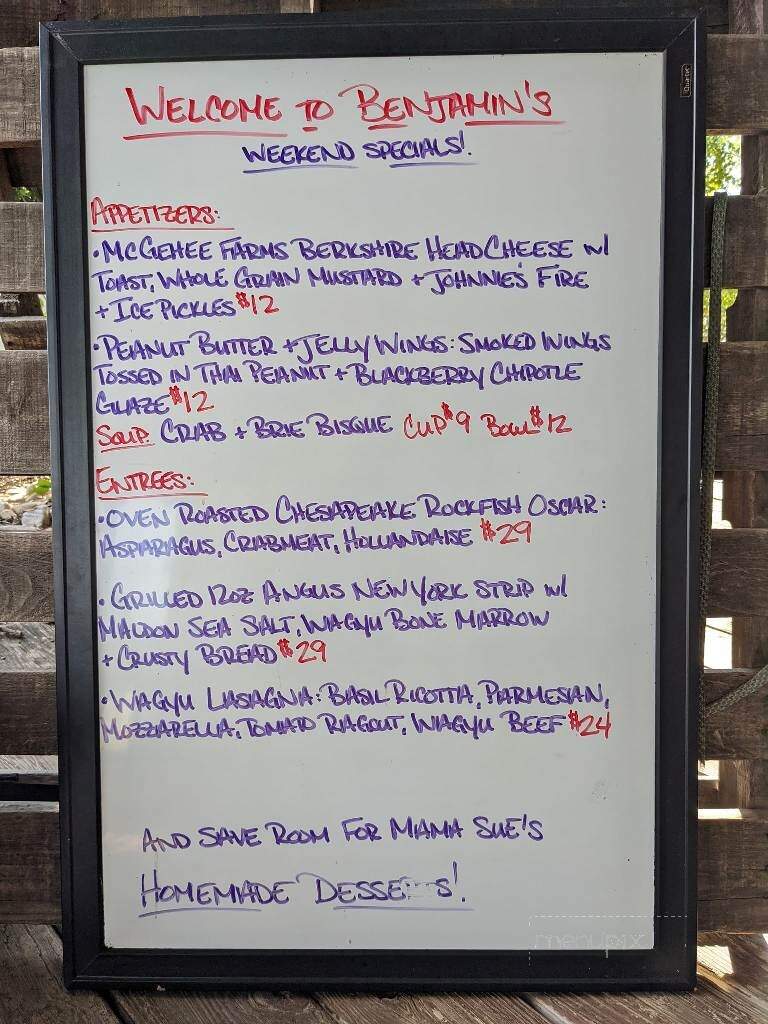 WELCOME TO BENJAMIN'S
WEEKEND SPECIALS!
APPETIZERS:
• MCGEHEE FARMS BERKSHIRE HEAD CHEESE W/
TOAST, WHOLE GRAIN MUSTARD + JOHNNIE'S FIRE
+ ICE PICKLES $12
• PEANUT BUTTER + JELLY WINGS: SMOKED WINGS
TOSSED IN THAI PEANUT + BLACKBERRY CHIPOTLE
GLAZE $12
SOUP: CRAB + BRIE BISQUE CUP $9 BOWL $12
ENTREES:
• OVEN ROASTED CHESAPEAKE ROCKFISH OSCAR:
ASPARAGUS, CRABMEAT, HOLLANDAISE $29
• GRILLED 12OZ ANGUS NEW YORK STRIP W/
MALDON SEA SALT, WAGYU BONE MARROW
+ CRUSTY BREAD $29
• WAGYU LASAGNA: BASIL RICOTTA, PARMESAN,
MOZZARELLA, TOMATO RAGOUT, WAGYU BEEF $24
AND SAVE ROOM FOR MAMA SUE'S
HOMEMADE DESSERTS!
menupix
Quartet